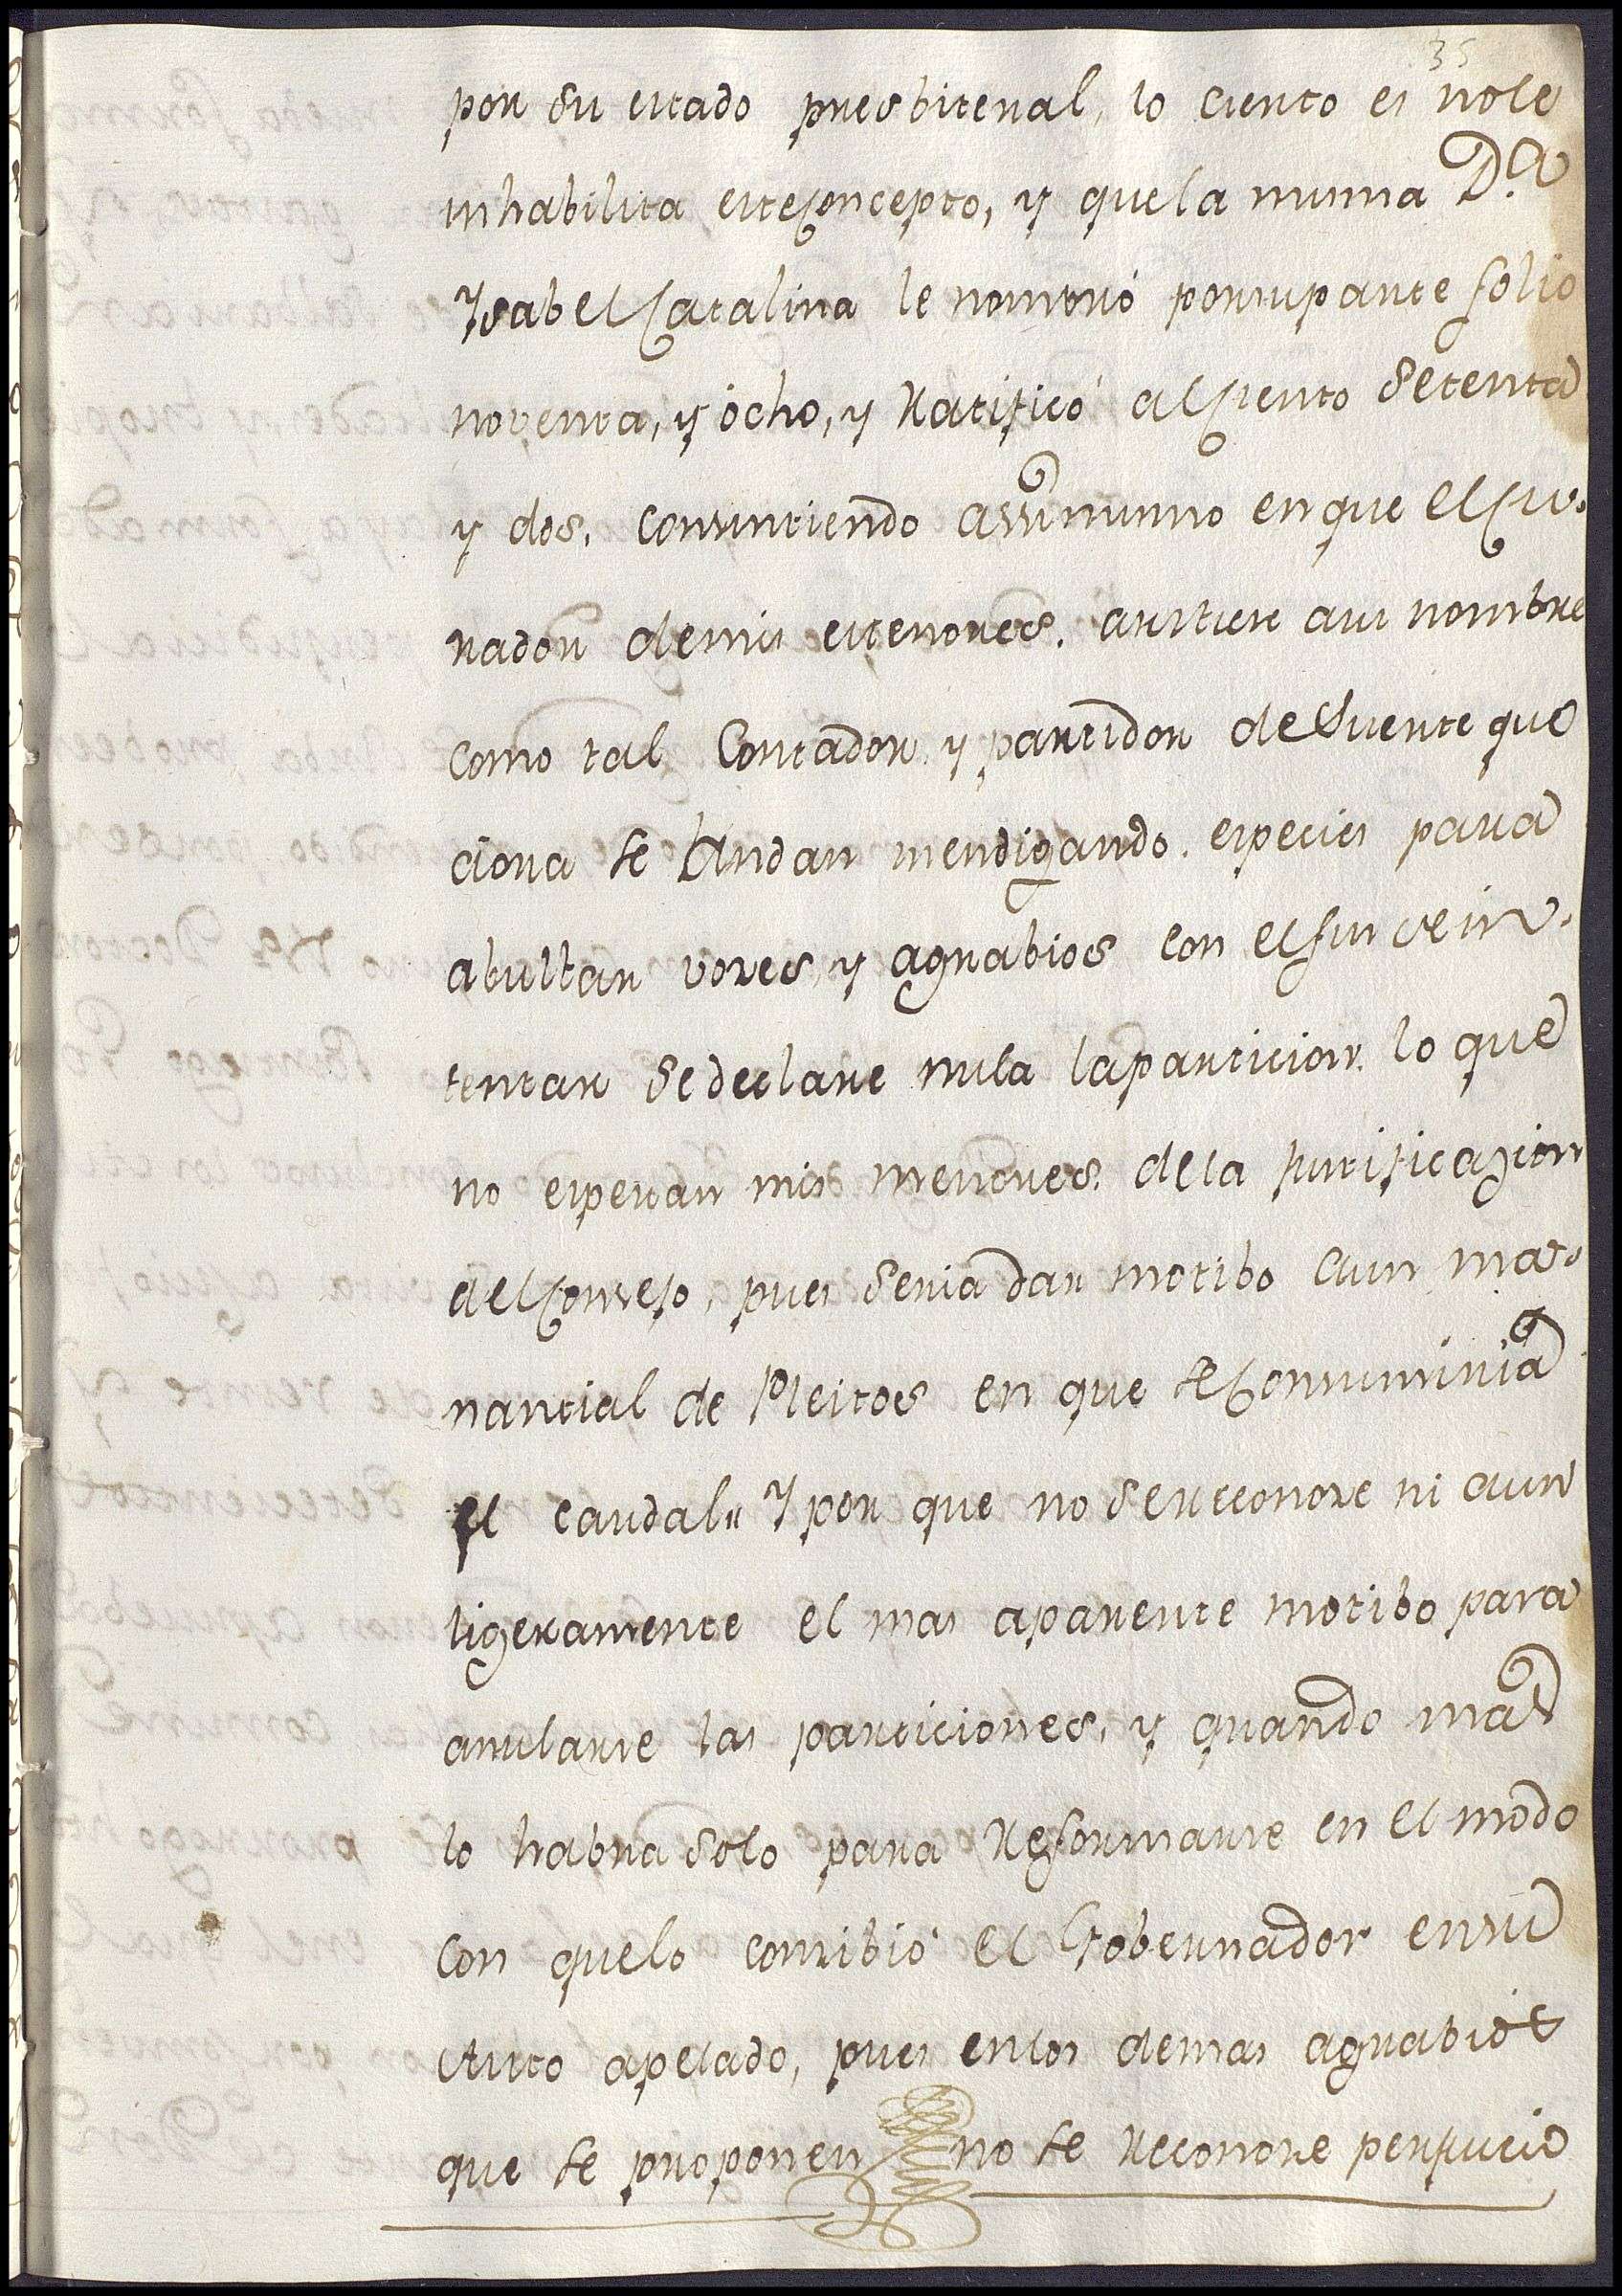 35
por su estado presbiteral, lo cierto es nole
inhabilita esteconcepto, y quela misma D.ª
Ysabel Catalina le nombró porsuparte folio
noventa, y ôcho, y Ratificó alciento setenta
y dos, consintiendo assimismo enque elcu-
rador demis estenores, asistiese asu nombre
como tal Contador, y partidor de Suerte que
aora se Andan mendigando especies para
abultar vozes, y agrabios con elfin de in-
tentar sedeclare nula laparticion, lo que
no esperan mis menores de la Justificazion
delConsejo, pues seria dar motibo aun ma-
nantial de Pleitos en que seConsumiria
el caudal, Y por que no sereconoze ni aun
ligeramente el mas aparente motibo para
anularse las particiones, y quando mas
lo habra solo para Reformarse en el modo
con quelo conzibió el Gobernador ensu
Auto apelado, pues enlos demas agrabios
que se proponen no se Reconoze perjucio